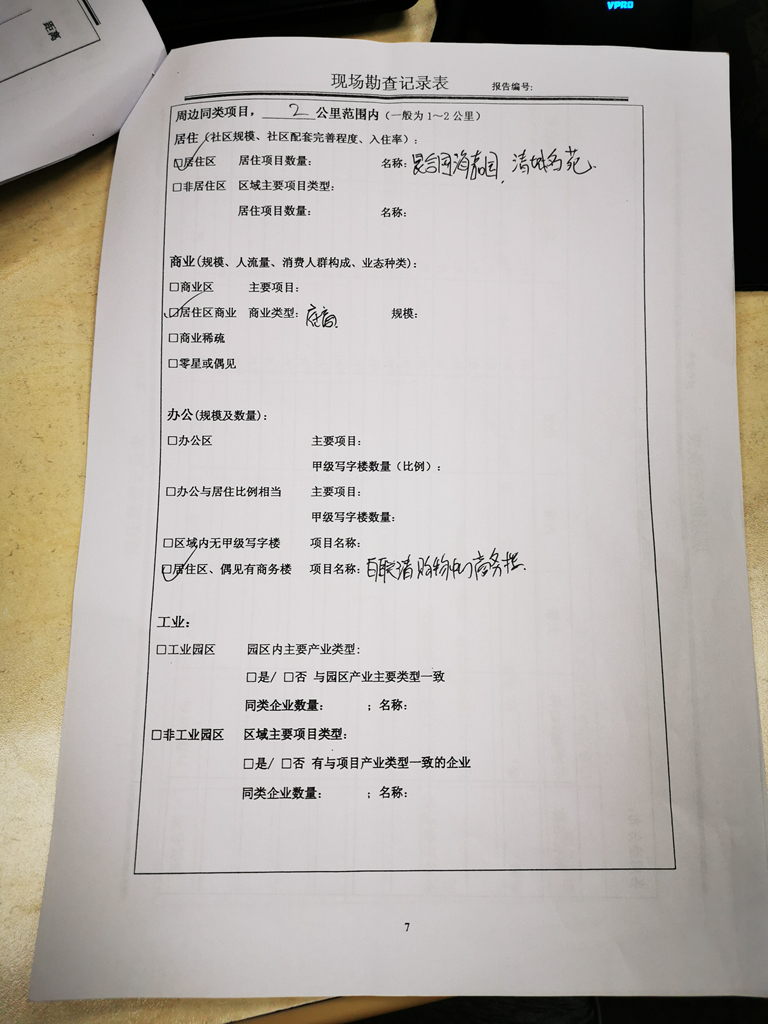 VPRO
距离
现场勘查记录表 报告编号:
周边同类项目，2公里范围内（一般为1～2公里）
居住（社区规模、社区配套完善程度、入住率）：
☑居住区 居住项目数量： 名称：
□非居住区 区域主要项目类型：
居住项目数量： 名称：
商业(规模、人流量、消费人群构成、业态种类)：
□商业区 主要项目：
☑居住区商业 商业类型：底商 规模：
□商业稀疏
□零星或偶见
办公(规模及数量)：
□办公区 主要项目：
甲级写字楼数量（比例）：
□办公与居住比例相当 主要项目：
甲级写字楼数量：
□区域内无甲级写字楼 项目名称：
☑居住区、偶见有商务楼 项目名称：购物中心商务楼
工业：
□工业园区 园区内主要产业类型：
□是/ □否 与园区产业主要类型一致
同类企业数量： ；名称：
□非工业园区 区域主要项目类型：
□是/ □否 有与项目产业类型一致的企业
同类企业数量： ；名称：
7